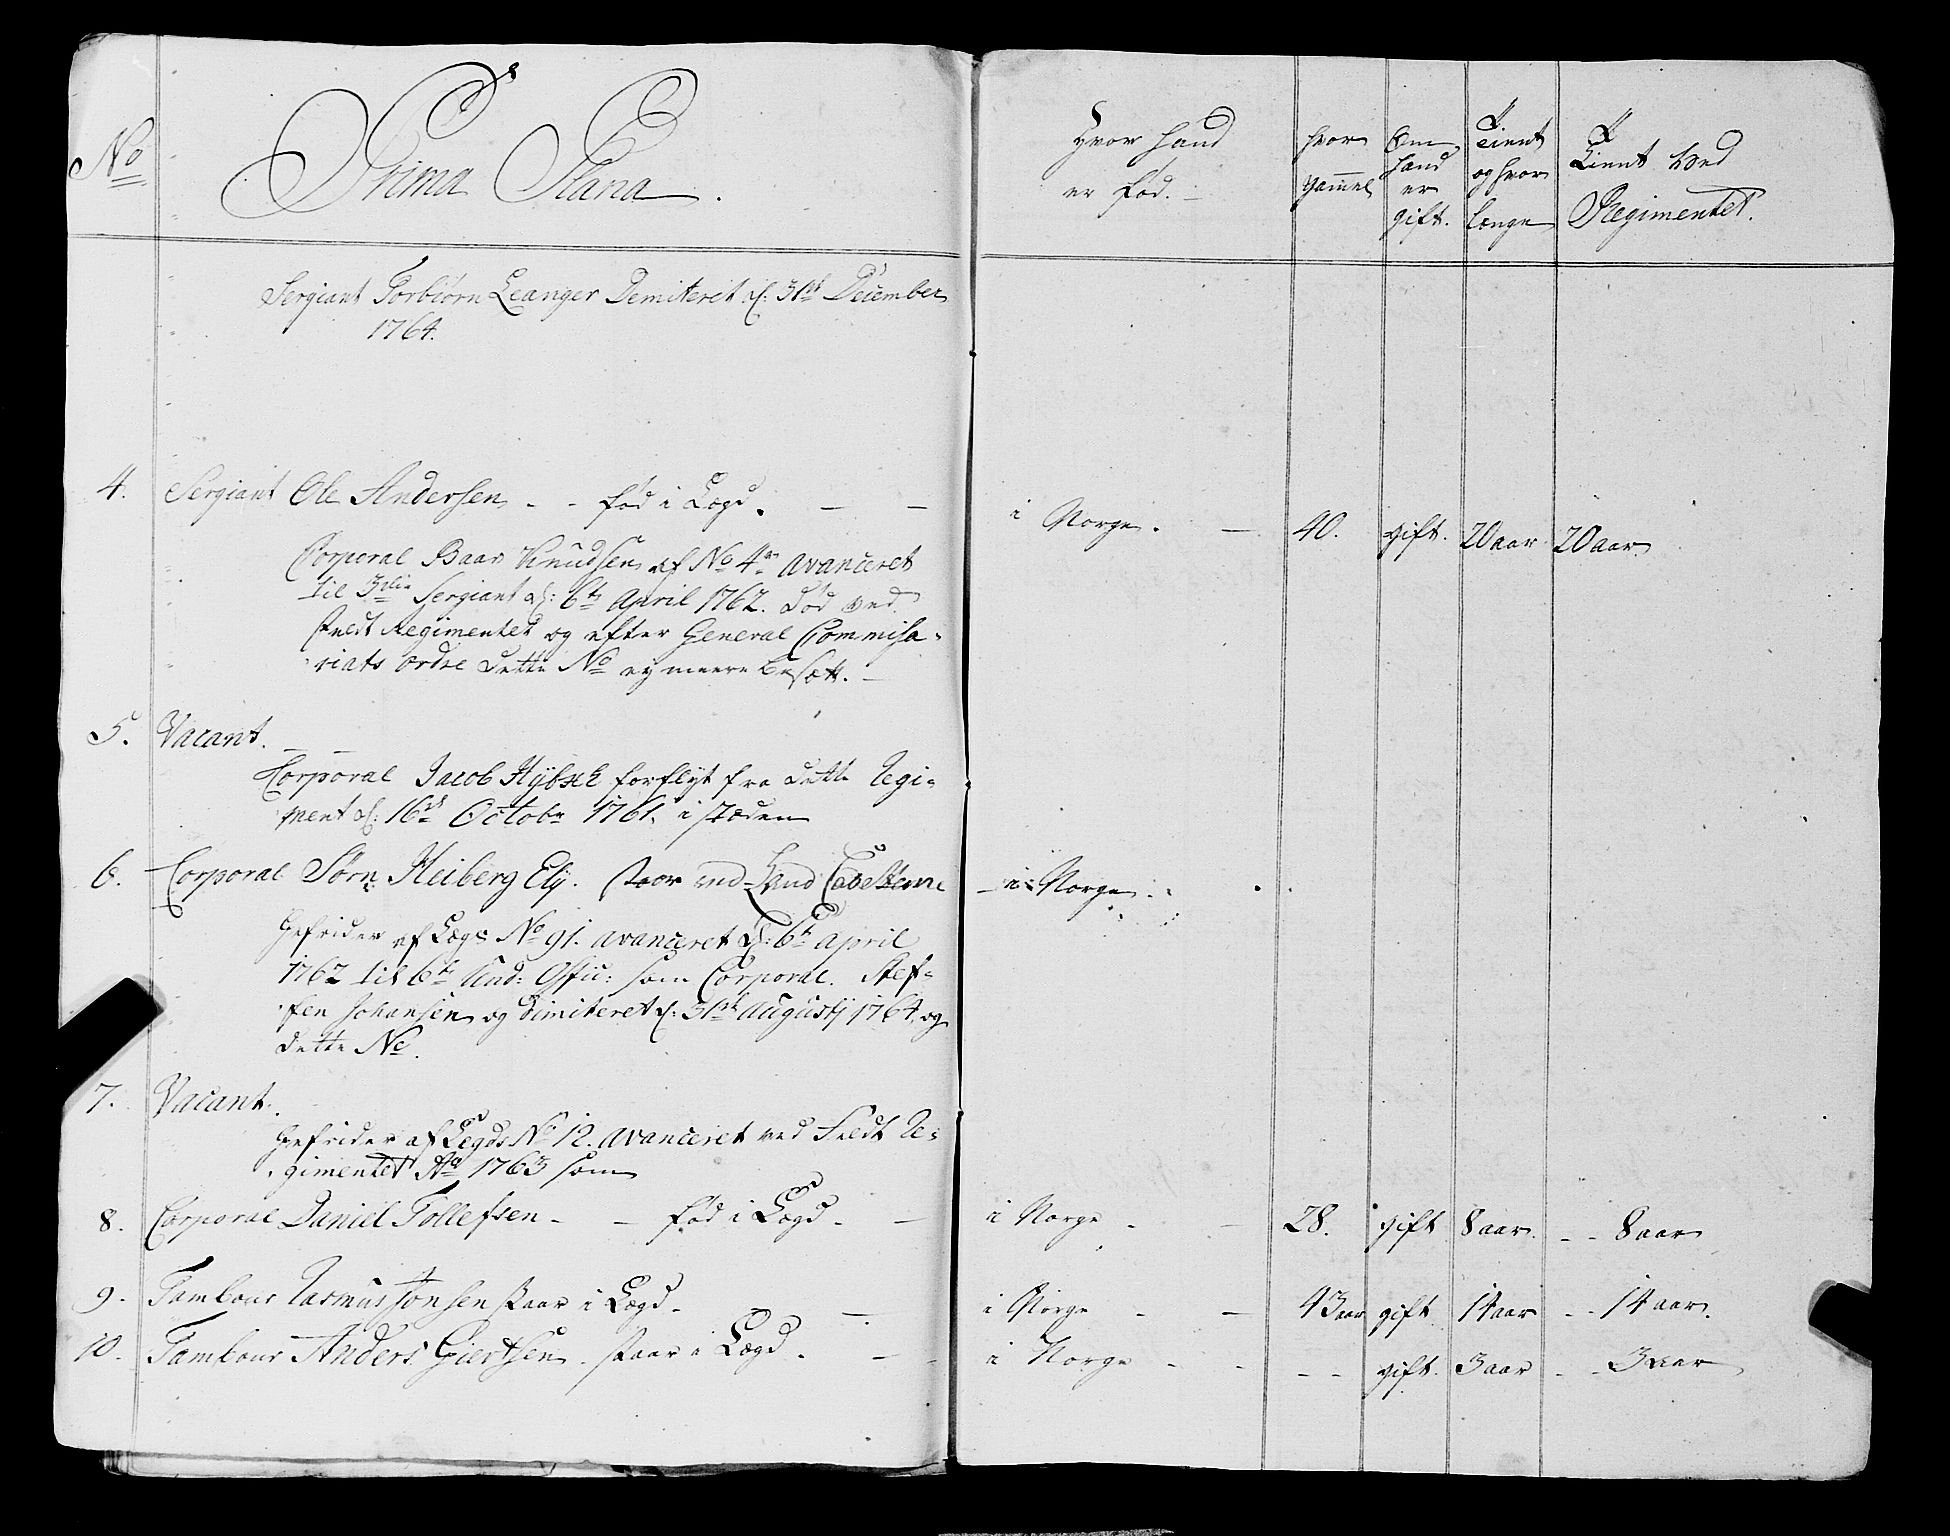 No
Prima Plana.
Hvor hand
er fød.
hvor
gammel
Om
hand
er
gift.
Tient
og hvor
længe
Tient ved
Regimentet.
Sergiant Torbiørn Leanger Demiteret d: 31te December
1764.
4. Sergiant Ole Andersen - - fød i Lægd. - - i Norge. - 40. gift. 20 aar 20 aar
Corporal Baar Knudsen af No 4 avanceret
til Sergiant d: 6te April 1762. død ved
feldt Regimentet og efter General Commisa-
riats ordre dette No ey meere besætt.
5. Vacant.
Corporal Jacob Hybsch forflyt fra dette Regi-
ment d: 16de Octobr 1761. i stæden
6. Corporal Sørn Heiberg Ely. staar ved Hand - i Norge.
Gefrider af Lægd No 91. avanceret d: 6te April
1762 til 6te Und: Offic: som Corporal. Stef-
fen Johansen og Dimiteret d: 31te Augustj 1764, og
dette No.
7. Vacant.
Gefrider af Legds No 12. avanceret ved Feldt Re-
gimentet Ao 1763 som
8. Corporal Daniel Tollefsen - - fød i Lægd - - i Norge - - 28. gift 8 aar. - - 8 aar
9. Tambour Rasmus Jonsen staar i Lægd - - i Norge - - 43 aar gift 14 aar - - 14 aar.
10. Tambour Anders Giertsen. staar i Lægd. - - i Norge - - - - gift. 3 aar - - 3 aar